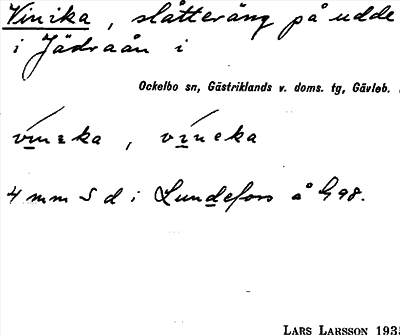 Vinika, slåtteräng på udde
i Jädraån i
Ockelbo sn, Gästriklands v. doms. tg, Gävleb.
vinɛka, vineka
4 mm S d i Lundefors å G98.
LARS LARSSON 193